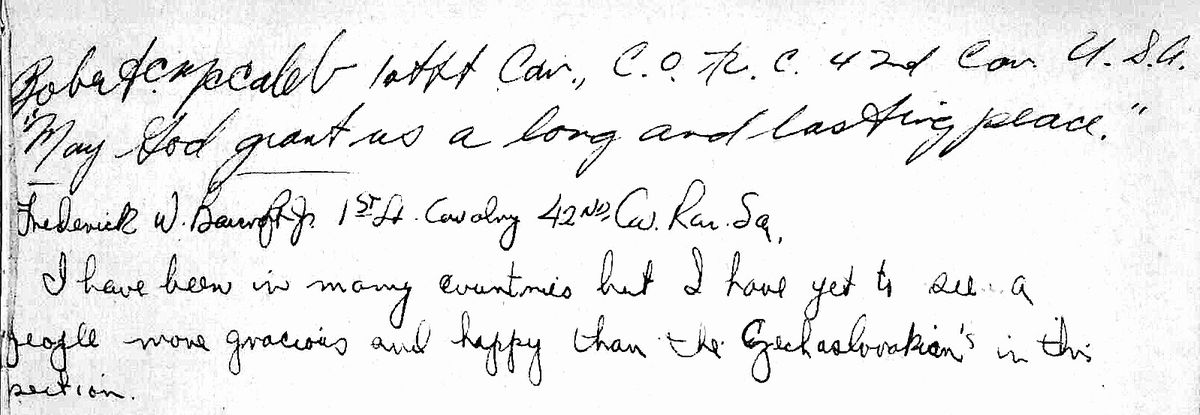 Robert C. McCaleb 1st Lt Cav., C.O. Tr. C. 42nd Cav. U.S.A.
"May God grant us a long and lasting peace."
Frederick W. Bancroft Jr. 1ST Lt. Cavalry 42ND, Cav. Rcn. Sq.
I have been in many countries but I have yet to see a
people more gracious and happy than the Czechaslovakian's in this
section.